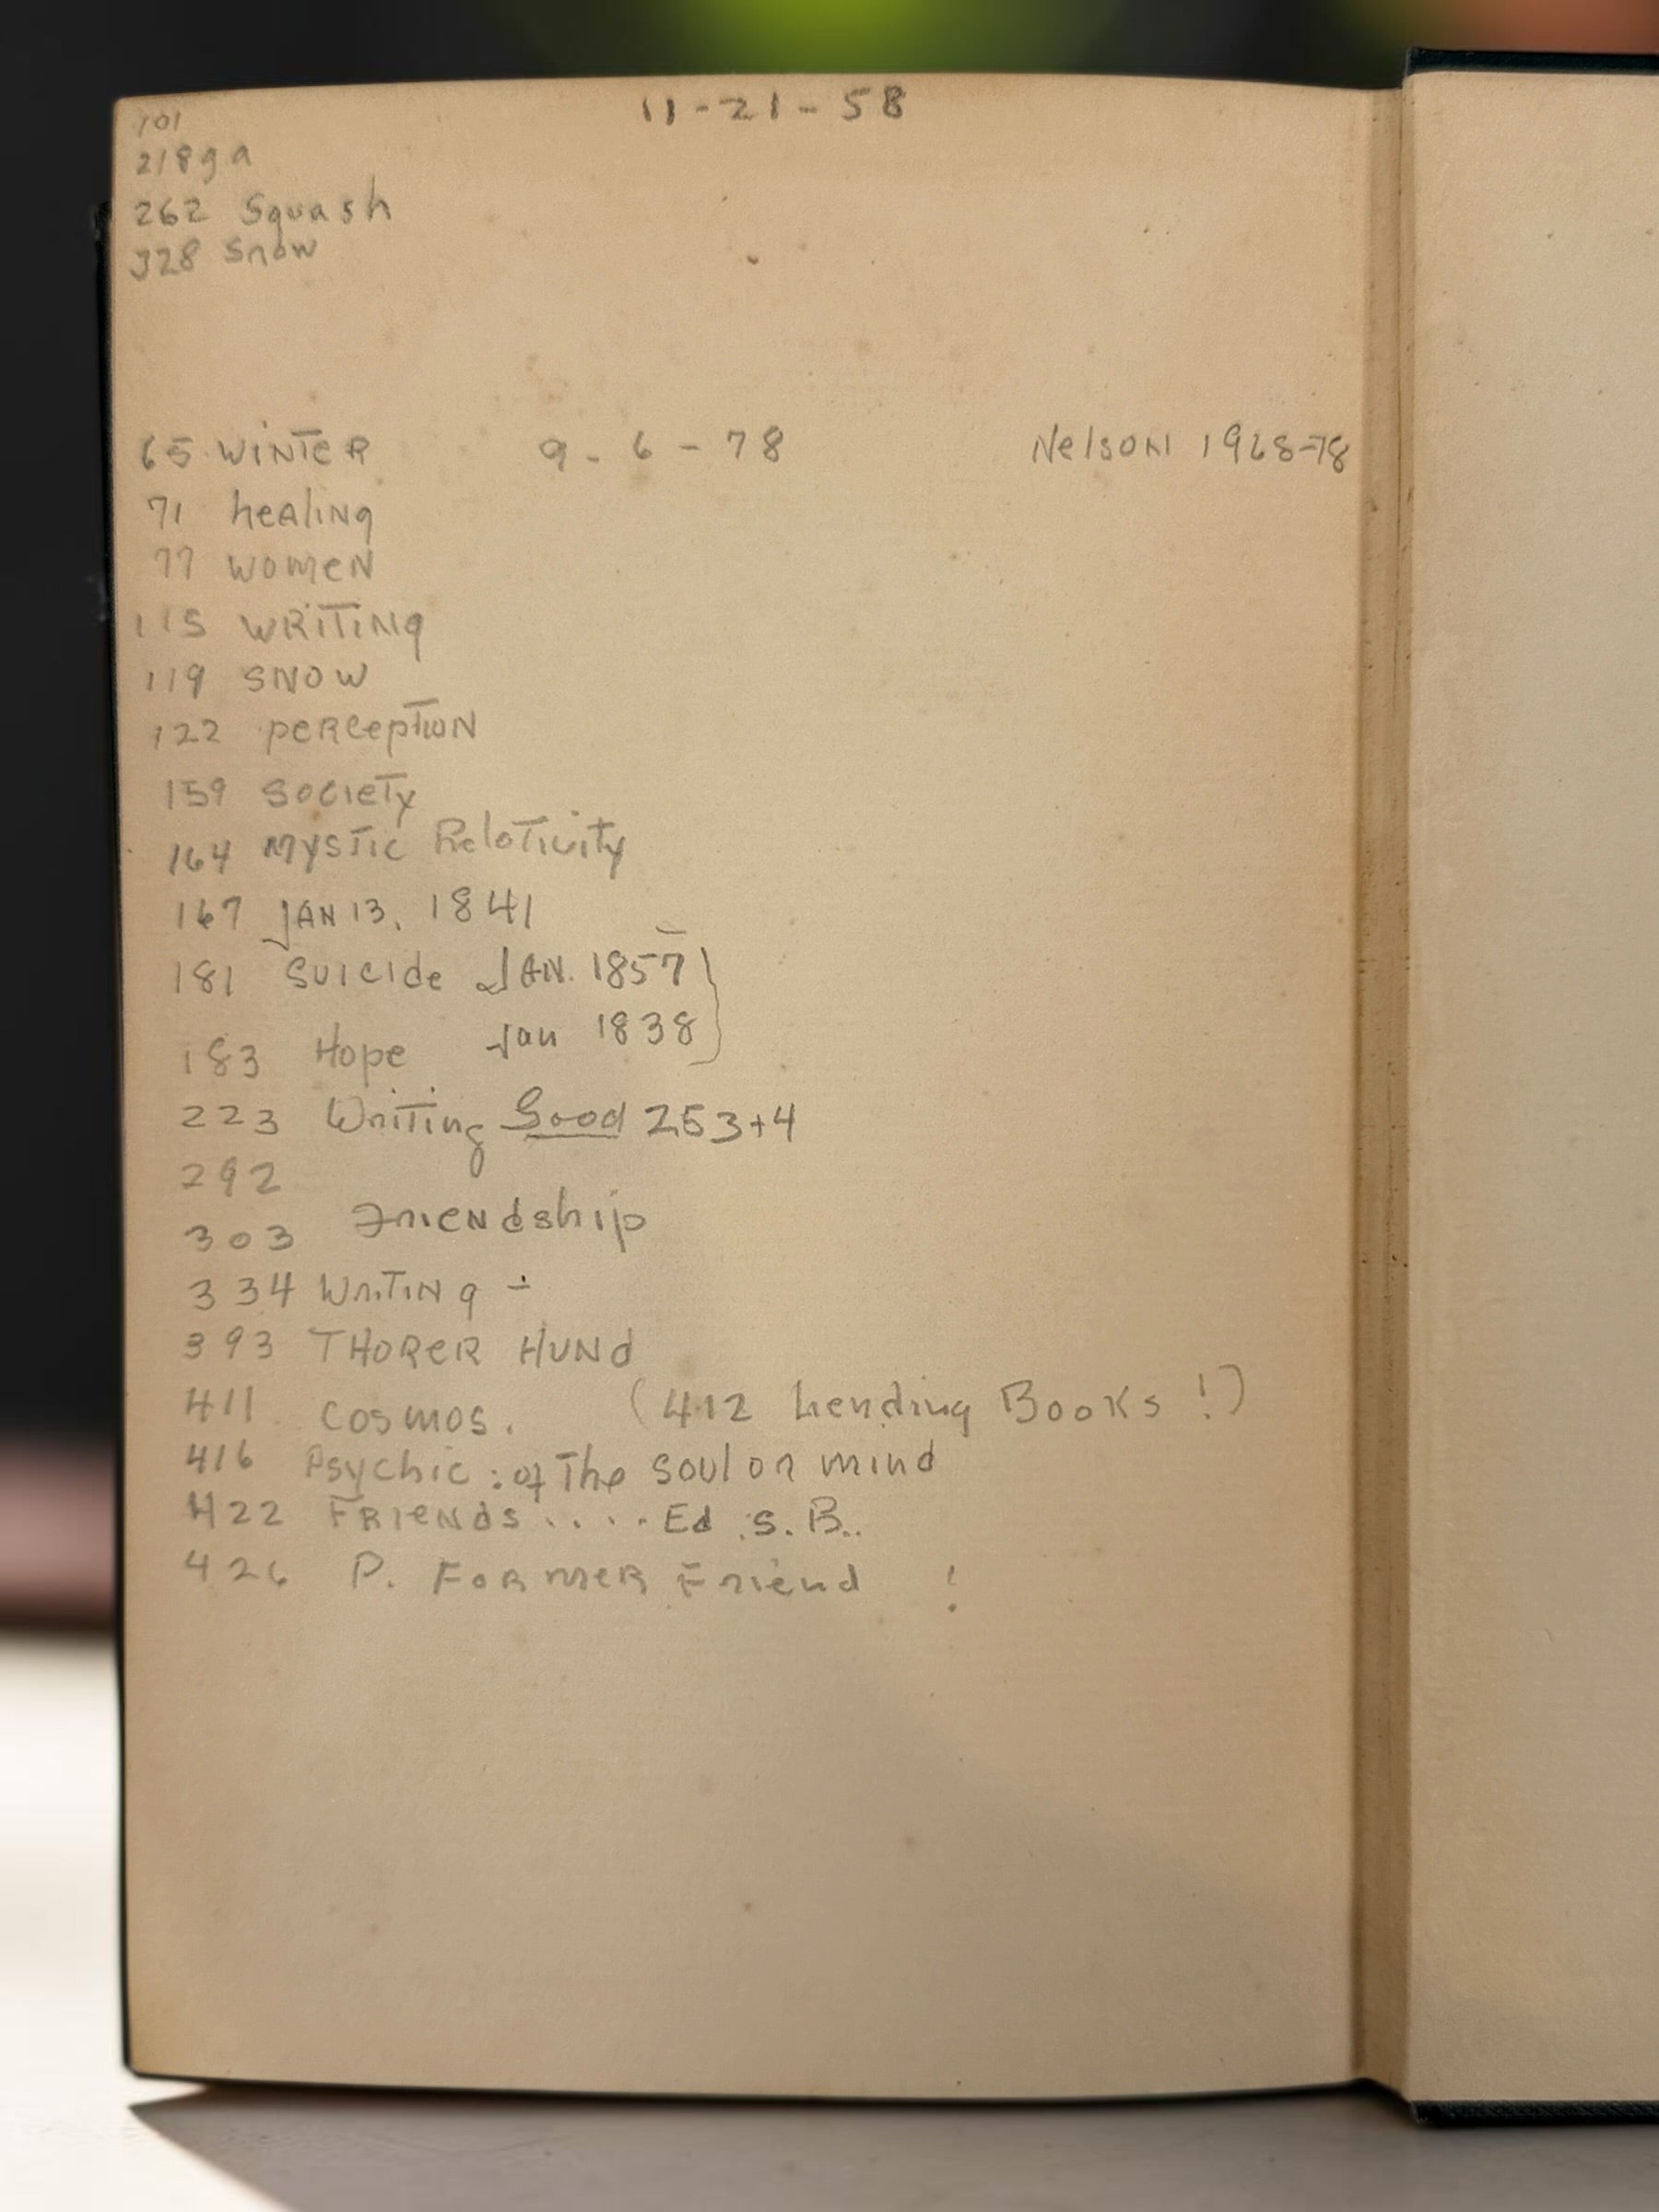 11-21-58
101
218 g a
262 Squash
328 Snow
65 WINTER 9-6-78 Nelson 1968-78
71 healing
77 women
115 WRITING
119 SNOW
122 perception
159 Society
164 Mystic Relativity
167 JAN 13, 1841
181 Suicide JAN. 1857
183 Hope Jan 1838
223 Writing Good 253+4
292
303 Friendship
334 Writing -
393 THORER HUND
411 COSMOS. (412 Lending Books!)
416 Psychic: of The soul or mind
422 Friends..... Ed. S. B..
426 P. Former Friend !